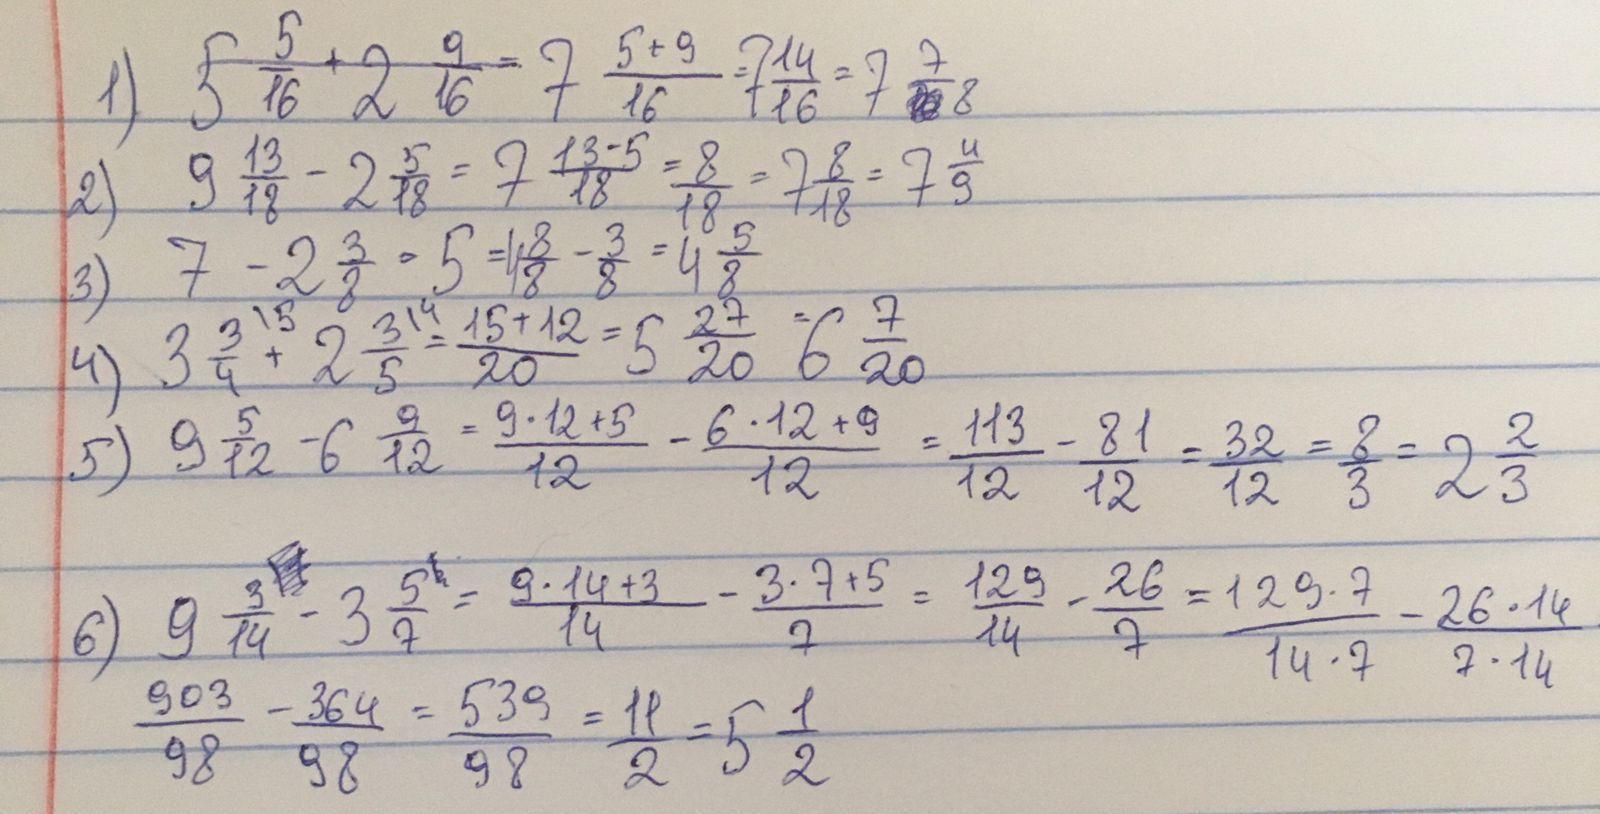 1) 5 5/16 + 2 9/16 = 7 (5+9)/16 = 7 14/16 = 7 7/8
2) 9 13/18 - 2 5/18 = 7 (13-5)/18 = 8/18 = 7 8/18 = 7 4/9
3) 7 - 2 3/8 = 5 = 4 8/8 - 3/8 = 4 5/8
4) 3 3/4 \5 + 2 3/5 \4 = (15+12)/20 = 5 27/20 = 6 7/20
5) 9 5/12 - 6 9/12 = (9·12+5)/12 - (6·12+9)/12 = 113/12 - 81/12 = 32/12 = 8/3 = 2 2/3
6) 9 3/14 - 3 5/7 = (9·14+3)/14 - (3·7+5)/7 = 129/14 - 26/7 = (129·7)/(14·7) - (26·14)/(7·14)
903/98 - 364/98 = 539/98 = 11/2 = 5 1/2